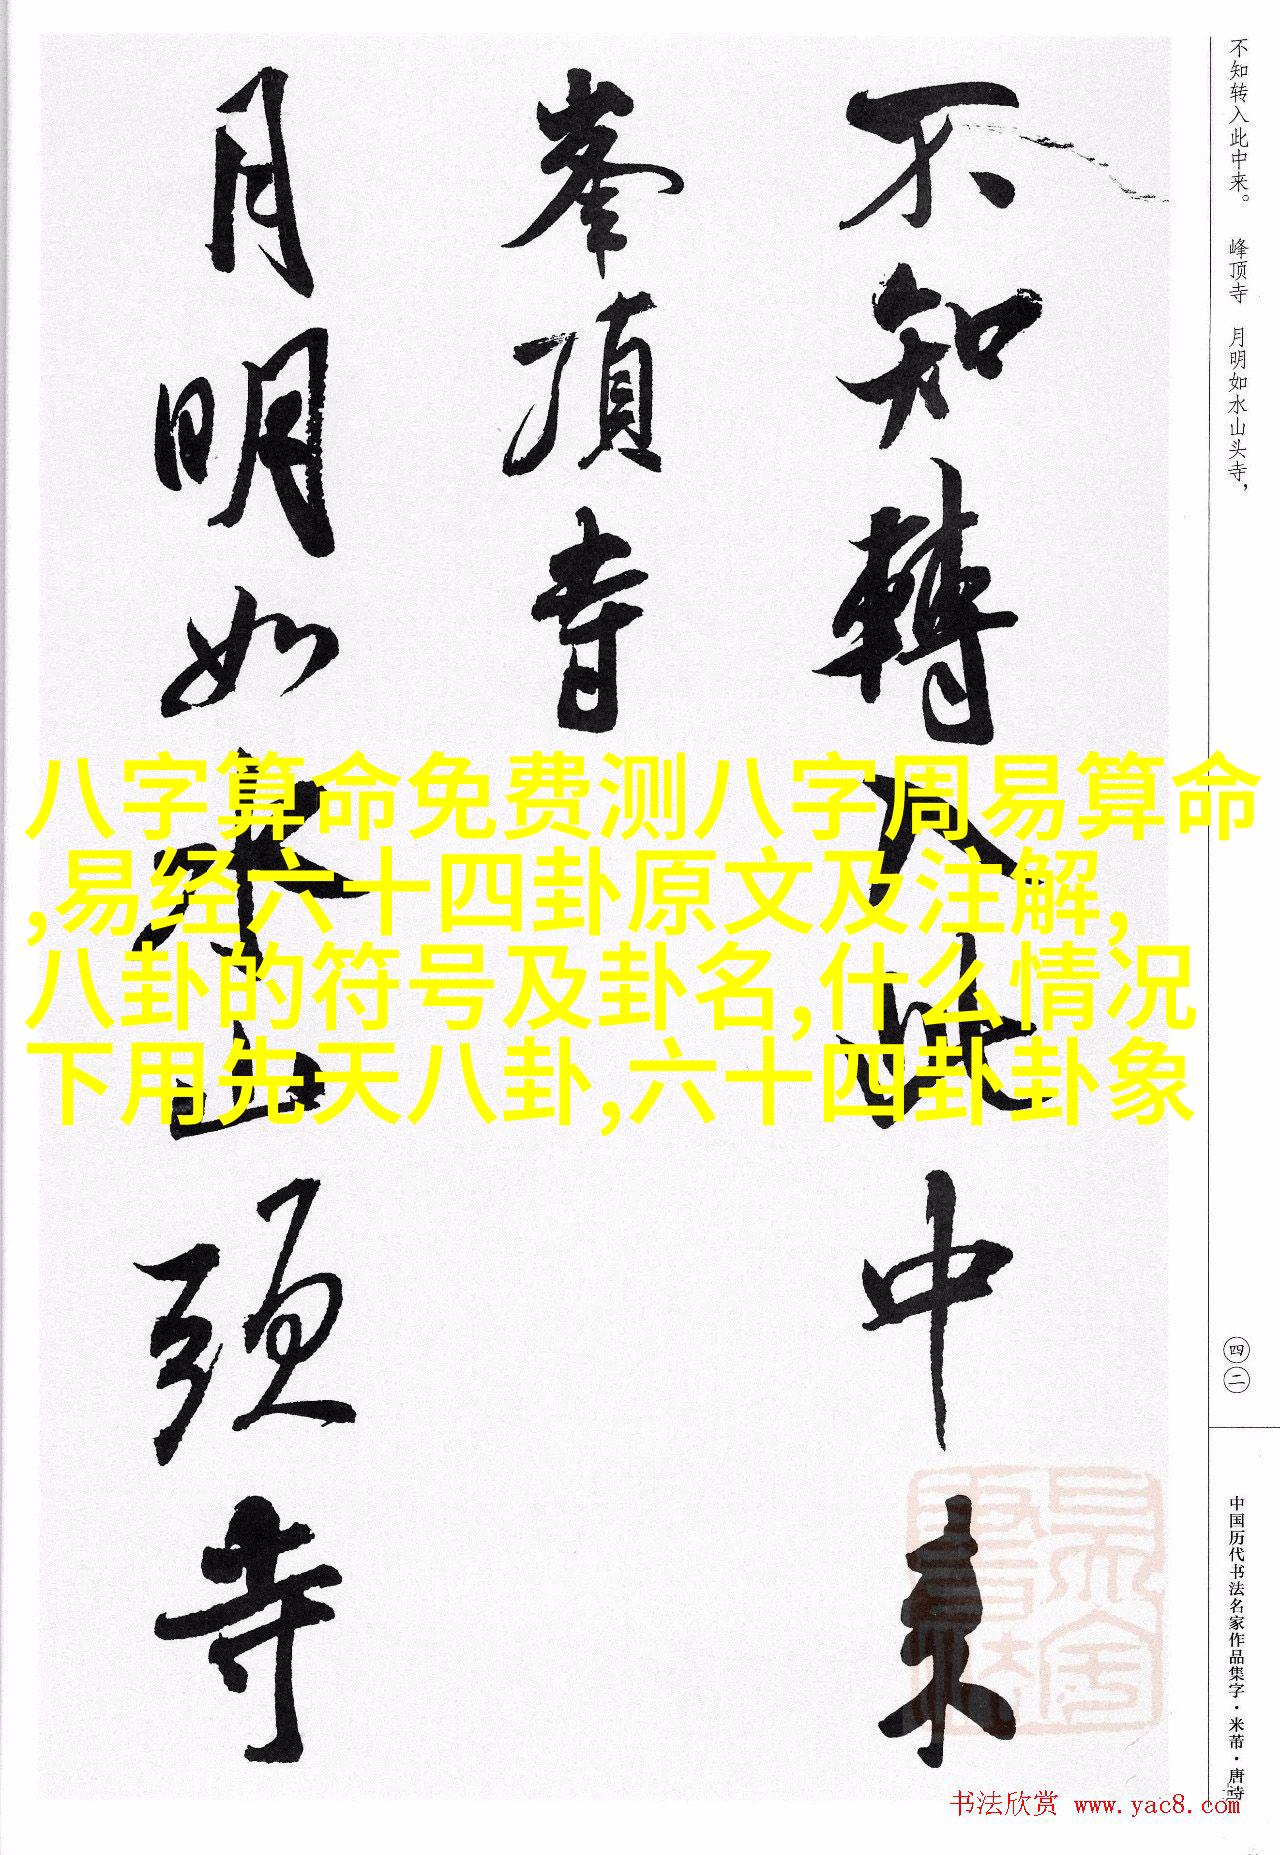 不知转入此中来。 峰顶寺 月明如水山头寺，
不知轉入此中来
峯頂寺
月明如水山頭寺
八字算命免费测八字周易算命
,易经六十四卦原文及注解,
八卦的符号及卦名,什么情况
下用先天八卦,六十四卦卦象
四二
中国历代书法名家作品集字·米芾·唐诗
书法欣赏 www.yac8.com